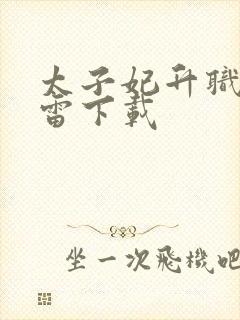 太子妃升職
雷下載
坐一次飛機吧